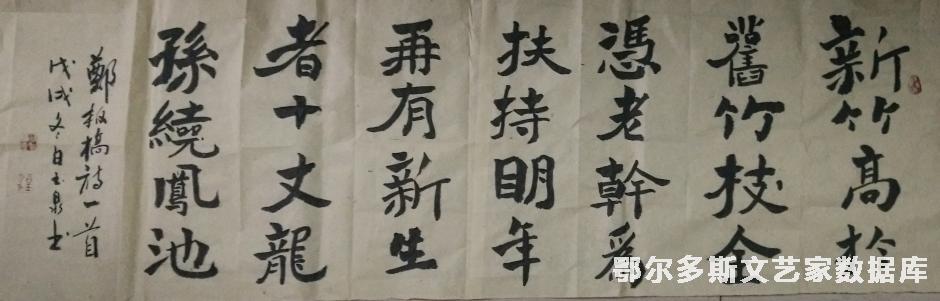 新竹高扵
舊竹枝全
憑老幹爲
扶持眀年
再有新生
者十丈龍
孫繞鳳池
鄭板橋詩一首
戊戌冬白玉泉书
鄂尔多斯文艺家数据库